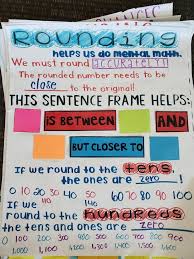 Rounding
helps us do mental math.
We must round accurately!
The rounded number needs to be
close to the original!
THIS SENTENCE FRAME HELPS:
IS BETWEEN AND
BUT CLOSER TO
If we round to the tens,
the ones are zero!
0 10 20 30 40 50 60 70 80 90 100
If we 140 150
round to the hundreds
the tens and ones are zero
0 100 200 300 400 500 600 700 800 900
1,000 1,100 1,400 1,500 1,600